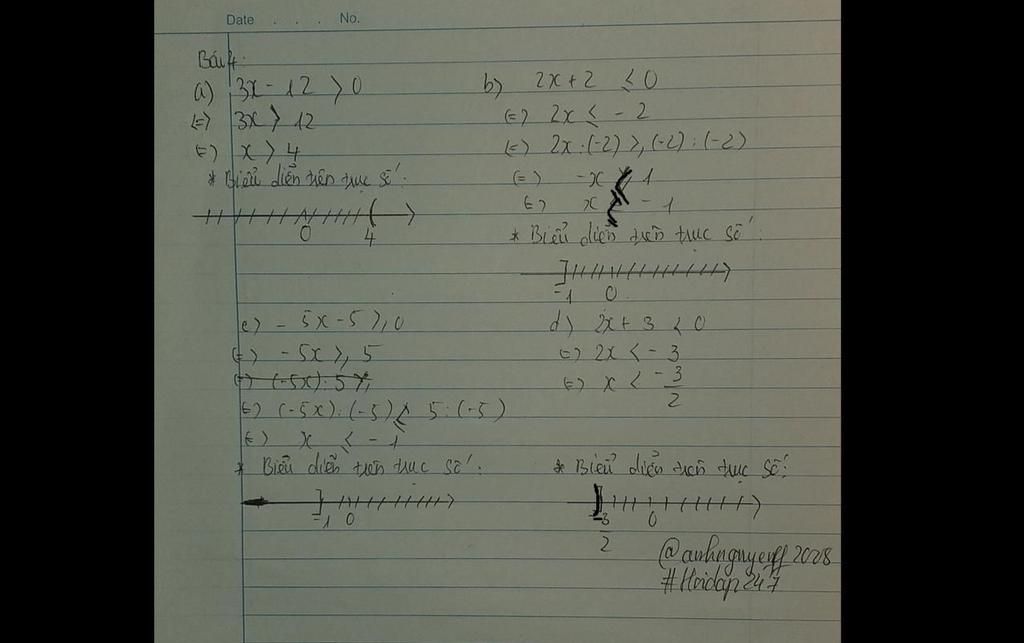 Date . . . No.
Bài 4:
a) 3x - 12 > 0
(=) 3x > 12
(=) x > 4
* Biểu diễn trên trục số:
0 4
b) 2x + 2 ≤ 0
(=) 2x ≤ - 2
(=) 2x : (-2) ≥ (-2) : (-2)
(=) -x 1
(=) x - 1
* Biểu diễn trên trục số:
-1 0
c) - 5x - 5 ≥ 0
(=) - 5x ≥ 5
(=) (-5x) : 5 ≥
(=) (-5x) : (-5) ≤ 5 : (-5)
(=) x ≤ - 1
* Biểu diễn trên trục số:
-1 0
d) 2x + 3 < 0
(=) 2x < - 3
(=) x < -3/2
* Biểu diễn trên trục số:
-3/2 0
@anhnguyenff2028
#Hoidap247